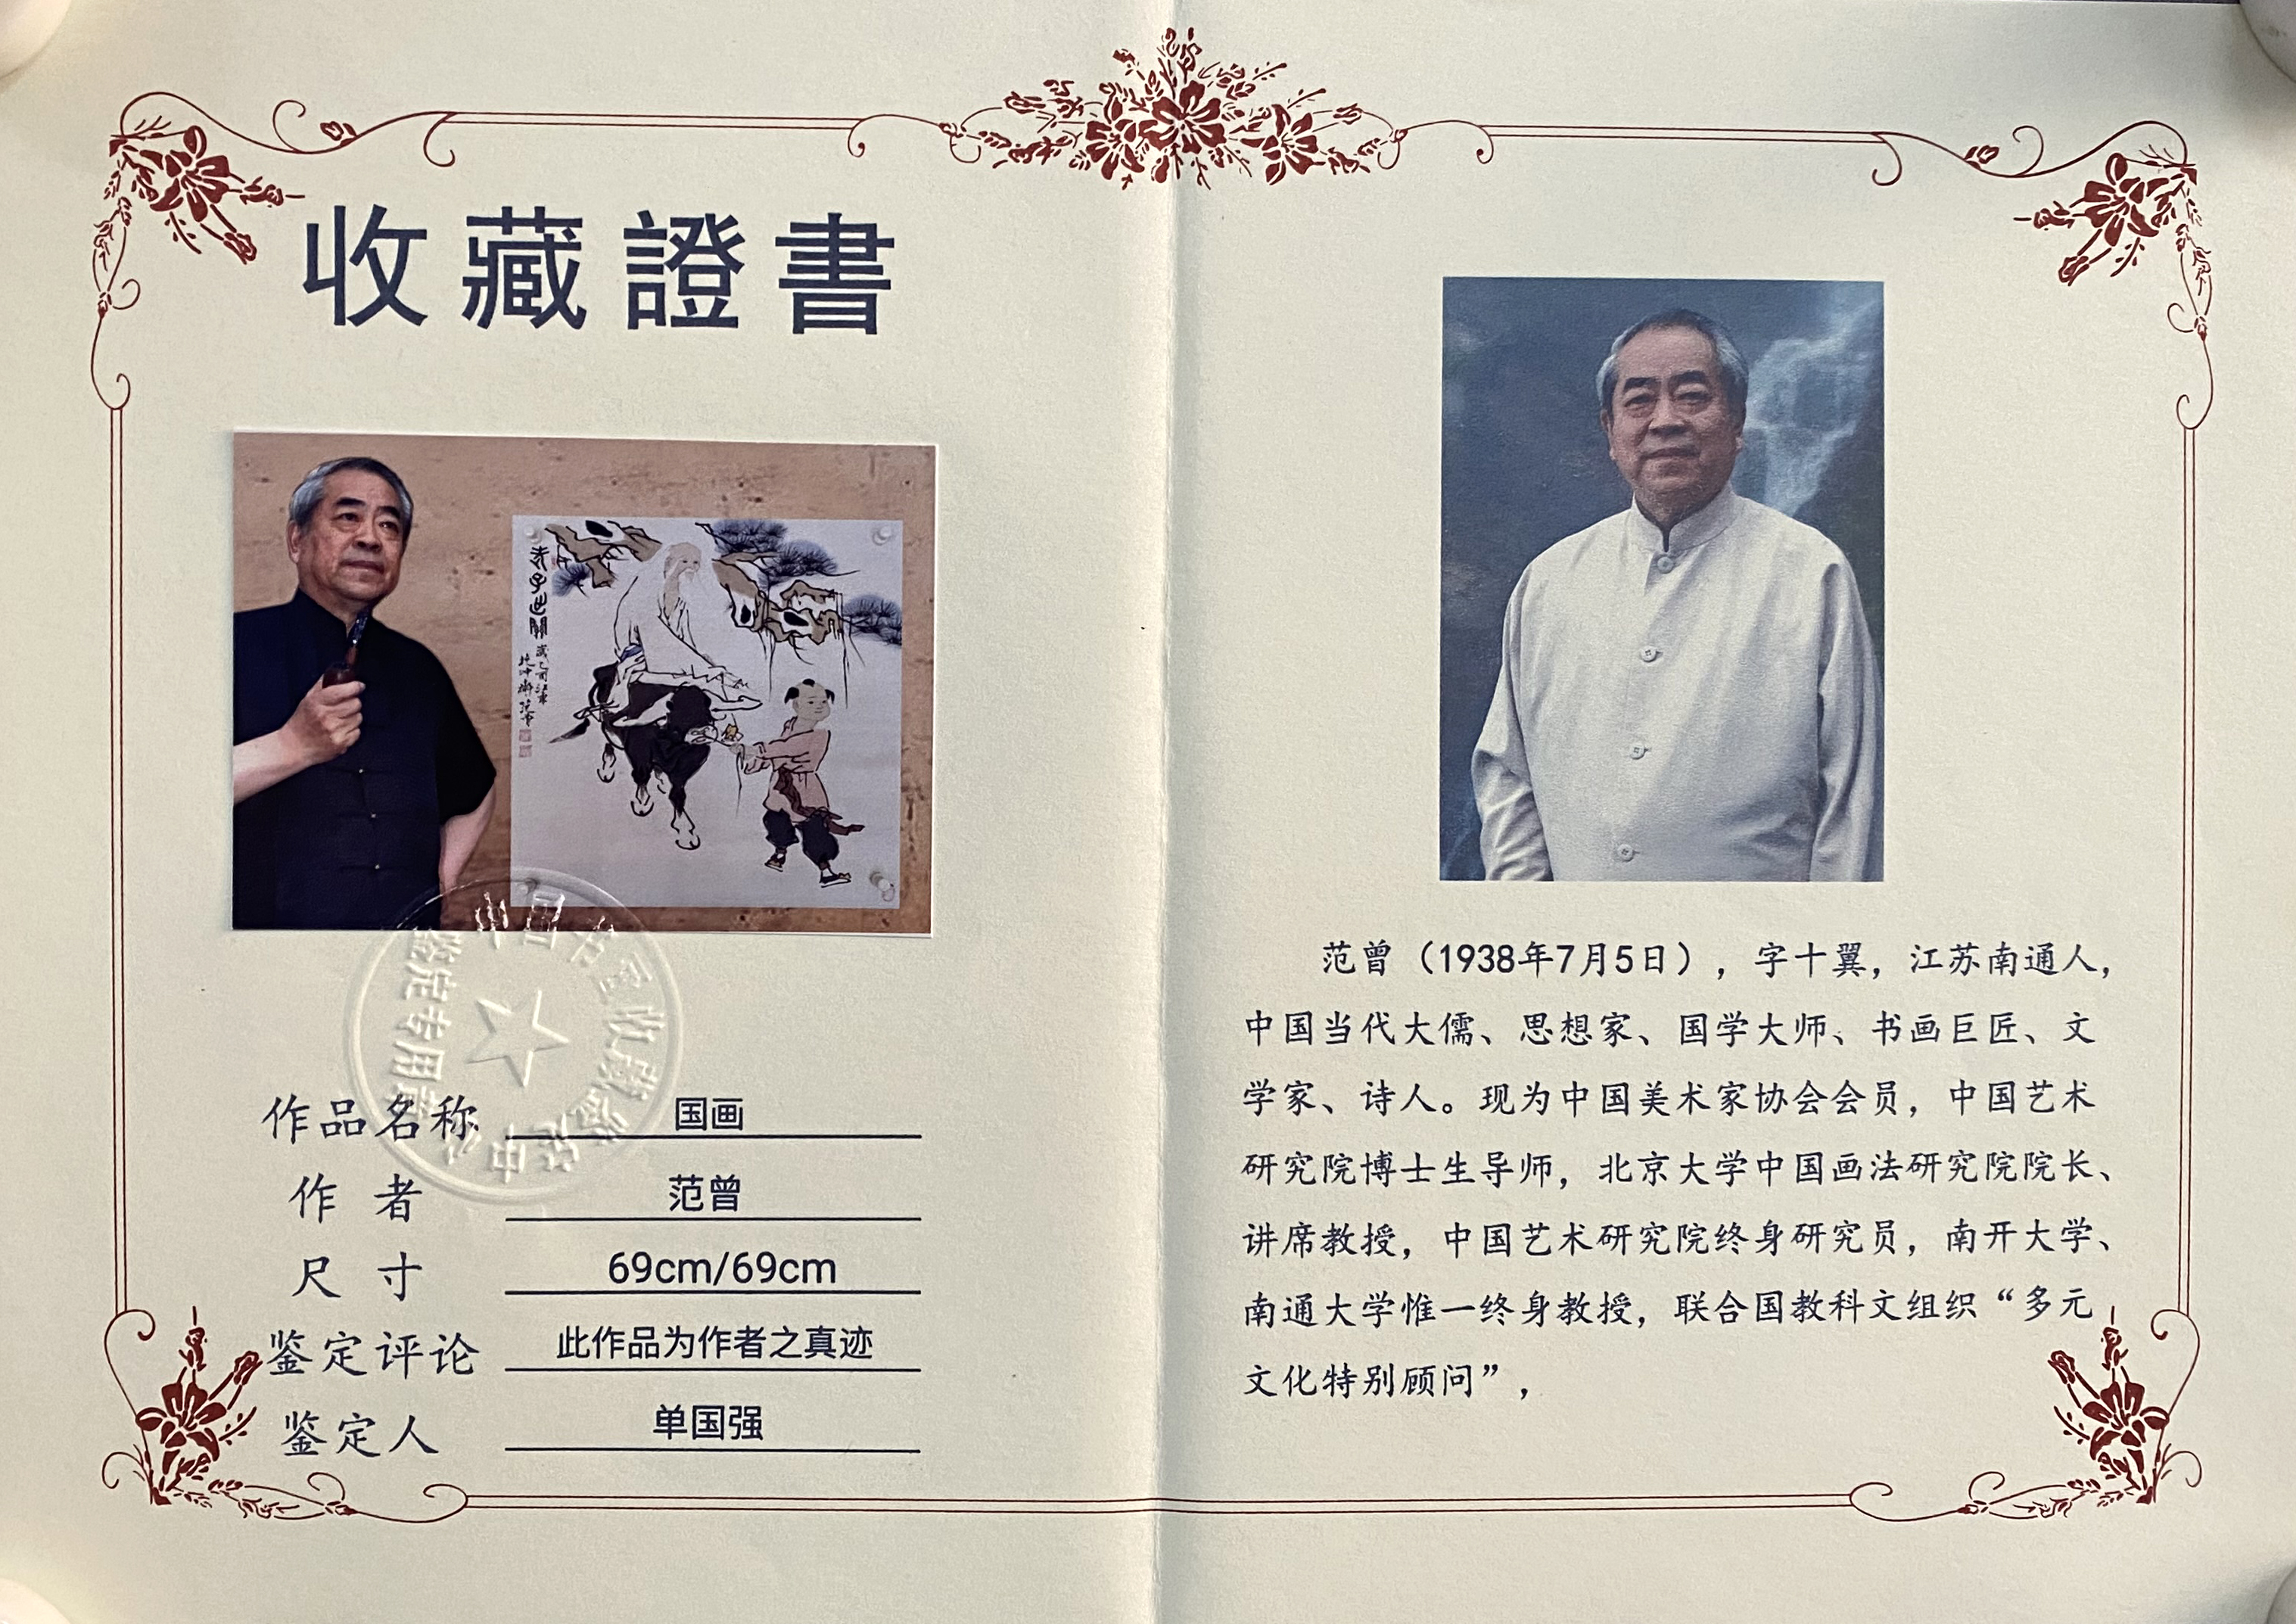 收藏證書
老子出關
作品名称 国画
作者 范曾
尺寸 69cm/69cm
鉴定评论 此作品为作者之真迹
鉴定人 单国强
鉴定专用章
范曾（1938年7月5日），字十翼，江苏南通人，
中国当代大儒、思想家、国学大师、书画巨匠、文
学家、诗人。现为中国美术家协会会员，中国艺术
研究院博士生导师，北京大学中国画法研究院院长、
讲席教授，中国艺术研究院终身研究员，南开大学、
南通大学惟一终身教授，联合国教科文组织“多元
文化特别顾问”，